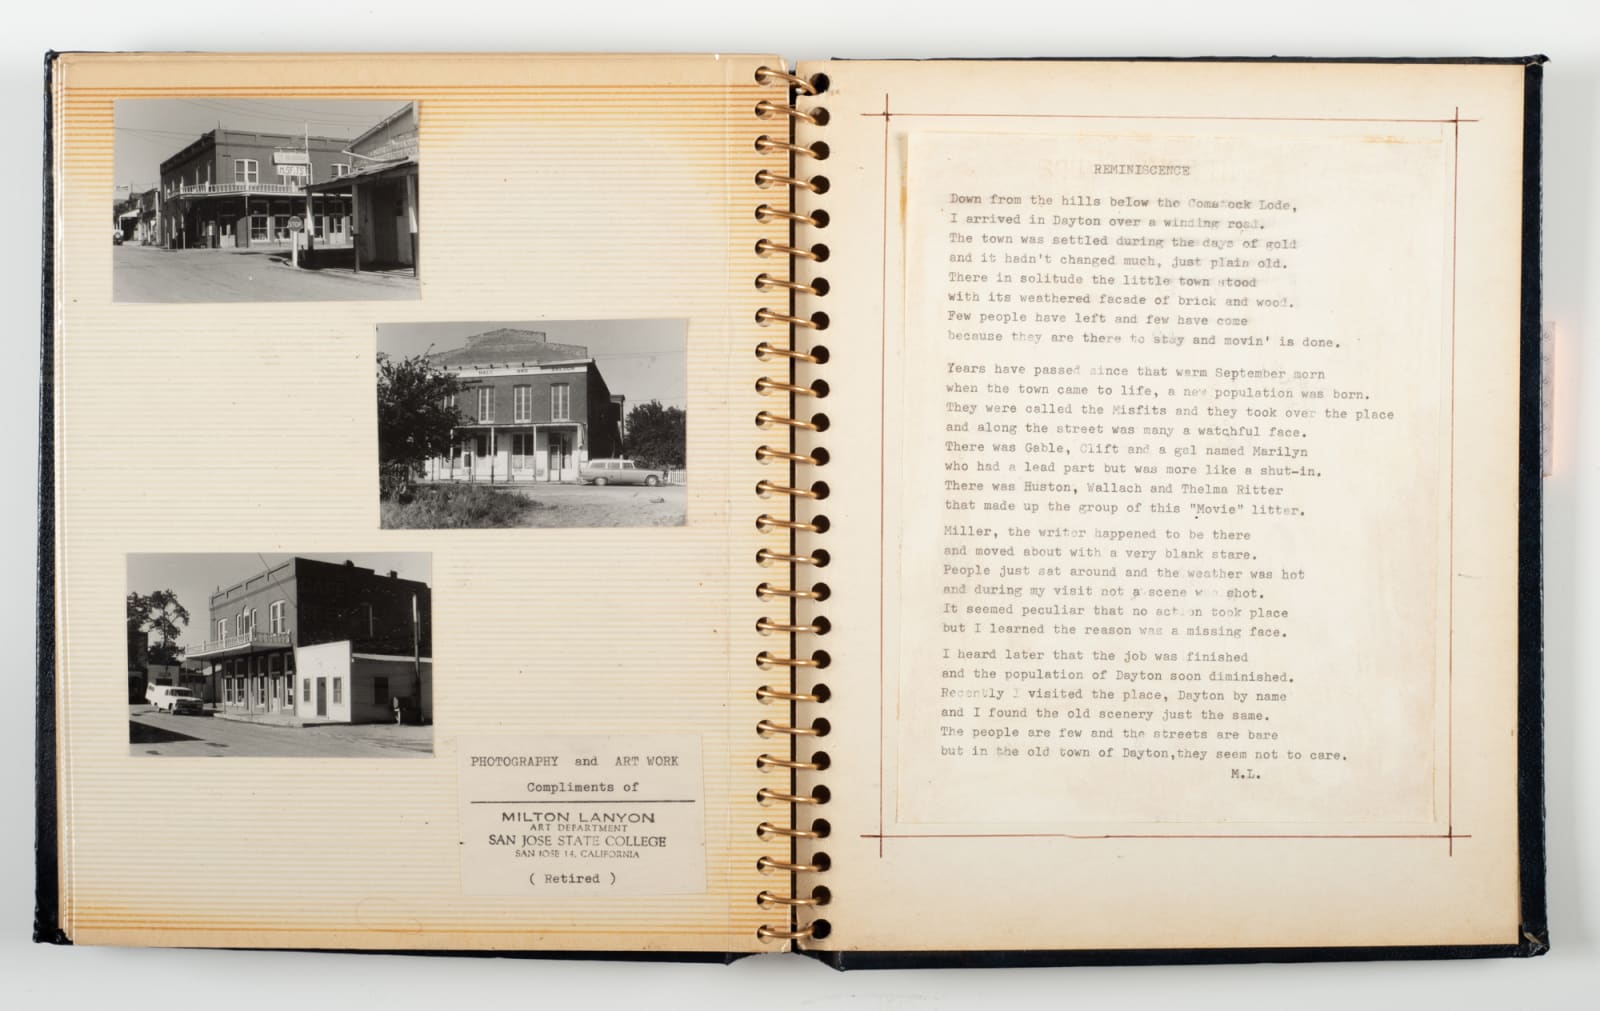 MISFITS
STOP
HALL AND SALOON
PHOTOGRAPHY and ART WORK
Compliments of
MILTON LANYON
ART DEPARTMENT
SAN JOSE STATE COLLEGE
SAN JOSE 14, CALIFORNIA
( Retired )
REMINISCENCE
Down from the hills below the Comstock Lode,
I arrived in Dayton over a winding road.
The town was settled during the days of gold
and it hadn't changed much, just plain old.
There in solitude the little town stood
with its weathered facade of brick and wood.
Few people have left and few have come
because they are there to stay and movin' is done.
Years have passed since that warm September morn
when the town came to life, a new population was born.
They were called the Misfits and they took over the place
and along the street was many a watchful face.
There was Gable, Clift and a gal named Marilyn
who had a lead part but was more like a shut-in.
There was Huston, Wallach and Thelma Ritter
that made up the group of this "Movie" litter.
Miller, the writer happened to be there
and moved about with a very blank stare.
People just sat around and the weather was hot
and during my visit not a scene was shot.
It seemed peculiar that no action took place
but I learned the reason was a missing face.
I heard later that the job was finished
and the population of Dayton soon diminished.
Recently I visited the place, Dayton by name
and I found the old scenery just the same.
The people are few and the streets are bare
but in the old town of Dayton,they seem not to care.
M.L.